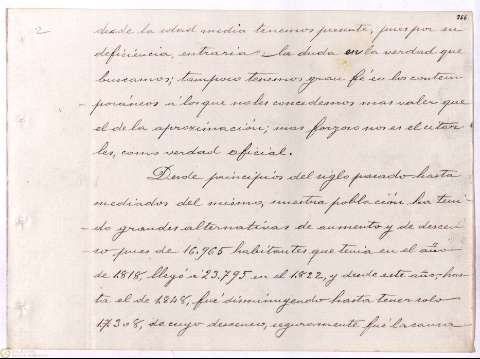 2
266
desde la edad media tenemos presente, pues por su
deficiencia, entraria la duda en la verdad que
buscamos; tampoco tenemos gran fé en los contem
-poráneos á los que no les concedemos mas valer que
el de la aproximación; mas forzoso nos es el citar
les, como verdad oficial.
Desde principios del siglo pasado hasta
mediados del mismo, nuestra población ha teni
-do grandes alternativas de aumento y de descen
-so pues de 16,965 habitantes que tenia en el año
de 1818, llegó á 23,795 en el 1822, y desde este año, has
ta el de 1848, fué disminuyendo hasta tener solo
17308, de cuyo descenso, seguramente fué la causa